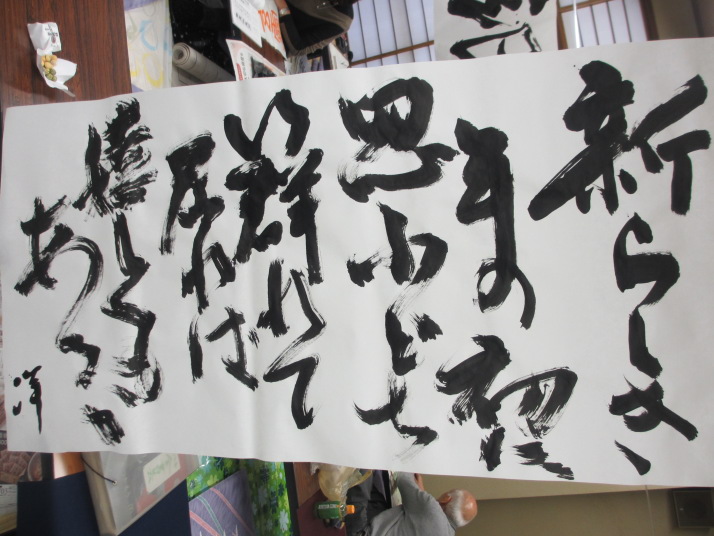 新らしき
年の初に
思ふどち
い群れて
居れば
嬉しくも
あるか
洋